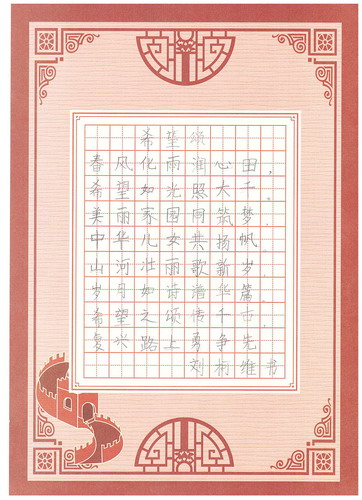 希望颂
春风化雨润心田，
希望如光照大千。
美丽家园同筑梦，
中华儿女共扬帆。
山河壮丽歌新岁，
岁月如诗谱华篇。
希望之颂传千古，
复兴路上勇争先。
刘桐维书